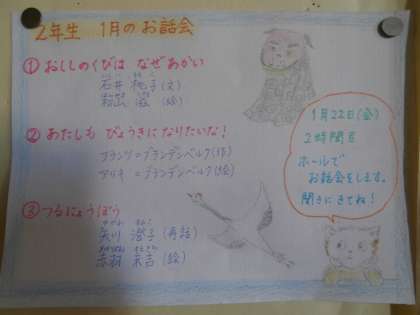 2年生 1月のお話会
① おししのくびは なぜあかい
いしい ももこ
石井 桃子(文)
(絵)
② あたしも びょうきになりたいな!
フランツ=ブランデンベルク(作)
アリキ =ブランデンベルク(絵)
③ つるにょうぼう
やがわ すみこ
矢川 澄子(再話)
あかば すえきち
赤羽 末吉(絵)
1月22日(金)
2時間目
ホールで
お話会をします。
聞きにきてね!